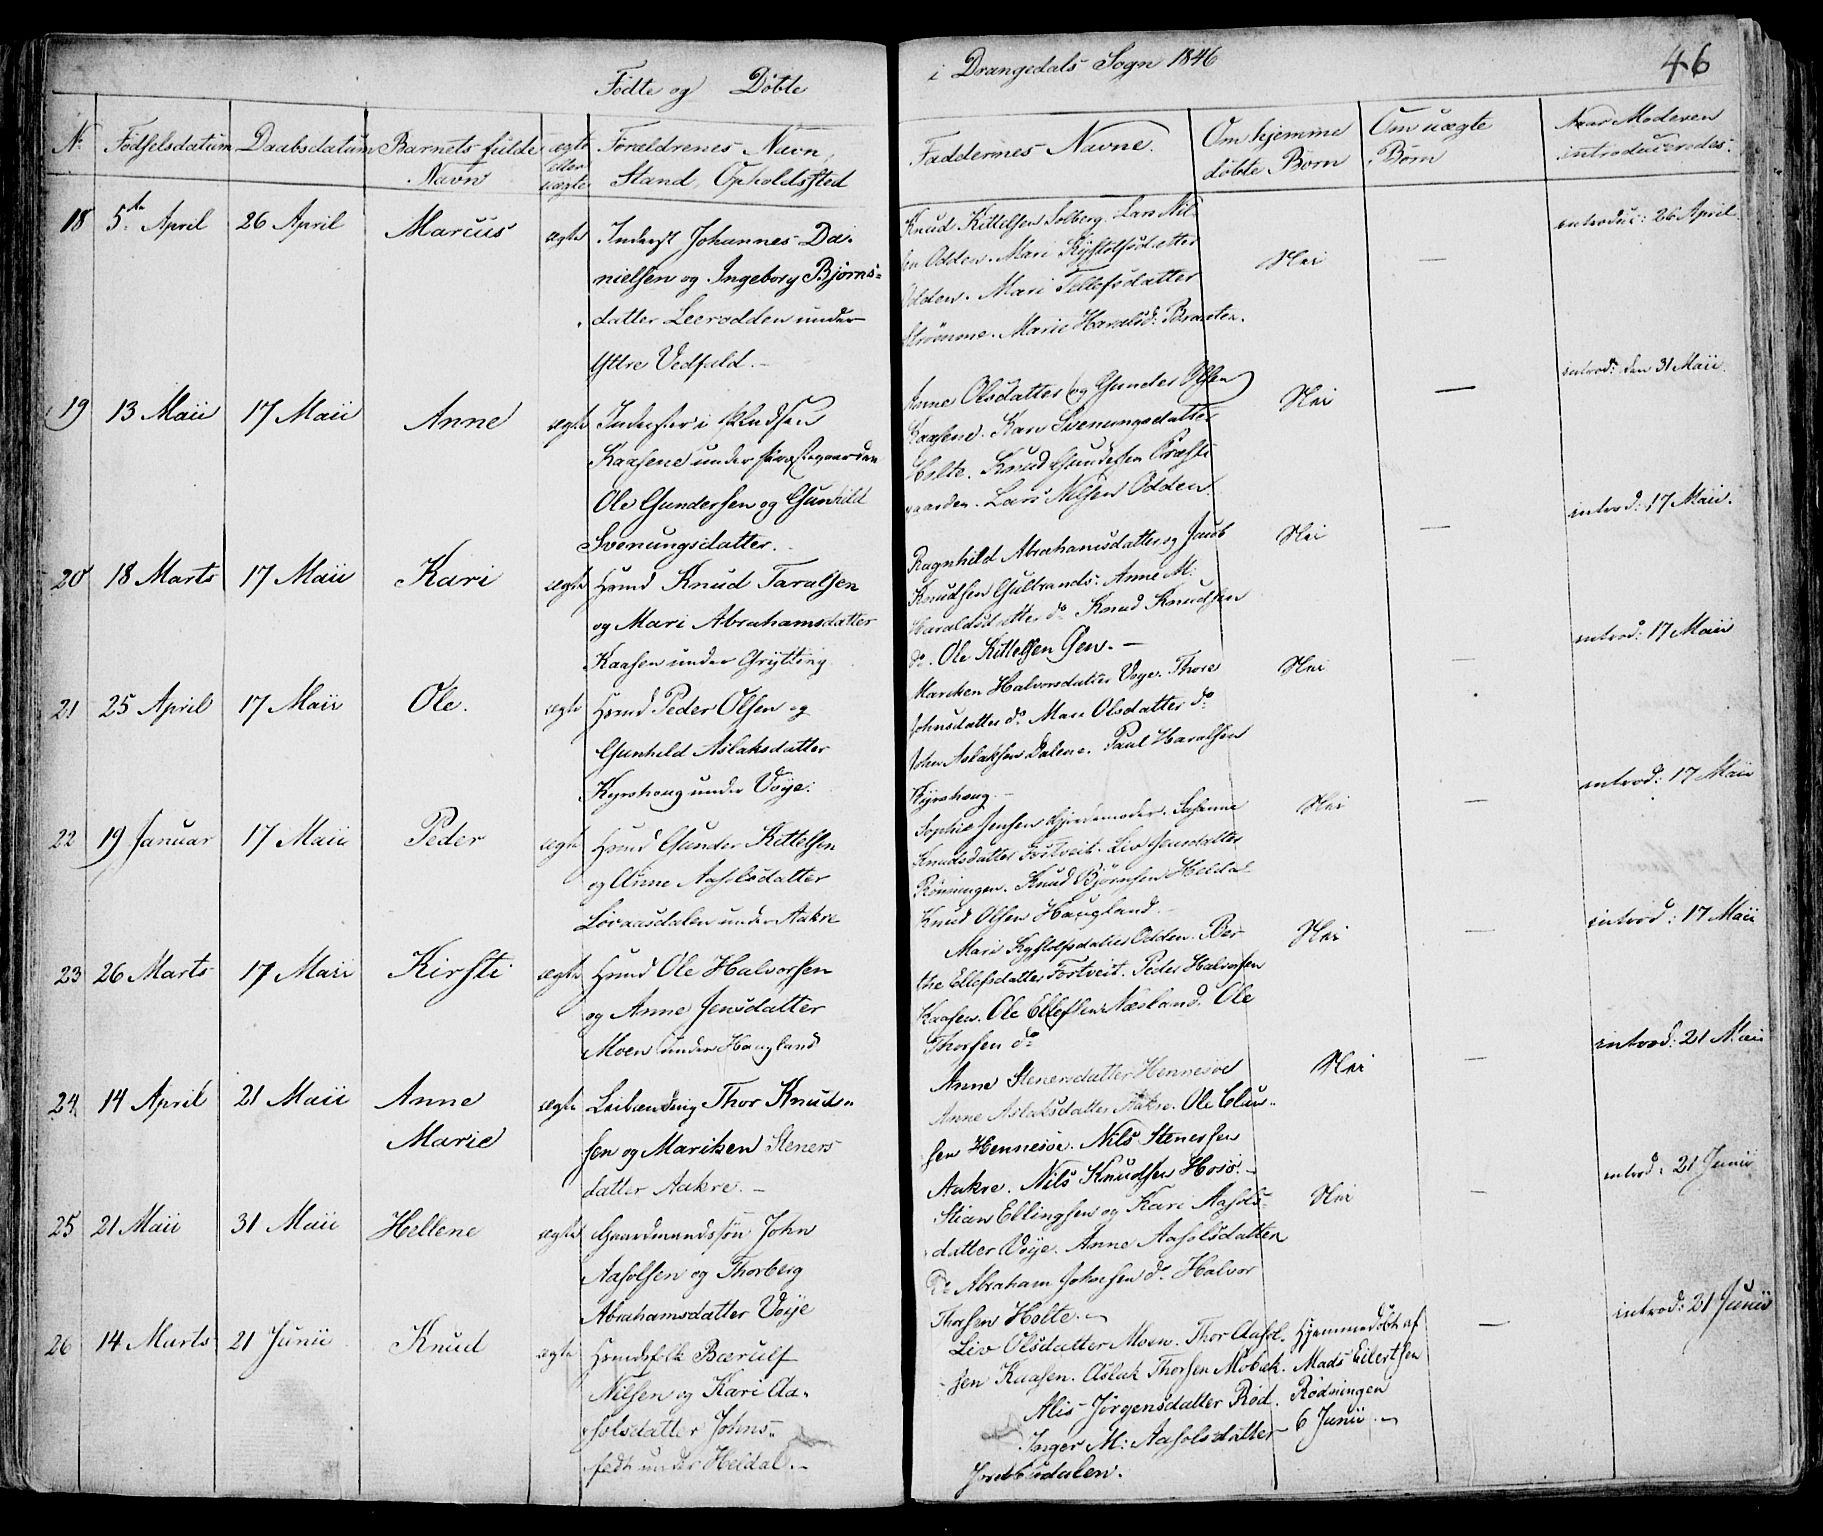 Födte og Döbte
i Drangedals Sogn 1846
46
No Födselsdatum Daabsdatum Barnets fulde Navn ægte eller uægte Forældrenes Navn, Stand, Opholdssted
Faddernes Navne. Om hjemme döbte Börn Om uægte Börn Naar Moderen introduceredes.
18 5te April 26 April Marcus ægte Inderst Johannes Da-
nielsen og Ingeborg Björns-
datter Leerodden under
Yttre Vedfald.
Knud Kittelsen Solberg. Lars Nil-
sen Odden. Mari Kystolfsdatter
Odden. Mari Tellefsdatter
Strömme. Marie Haraldsd: Braaten.
Nei —
introduc: 26 April
19 13 Maii 17 Maii Anne ægte Inderster i
Kaasene under Præstegaarden
Ole Gundersen og Gunhild
Svenungsdatter.
Anne Olsdatter (og Gunder Olsen)
Kaasene. Kari Svenungsdatter
Holte. Knud Gundersen Præste
gaarden. Lars Nilsen Odden.
Nei —
introd: den 31 Maii.
20 18 Marts 17 Maii Kari ægte Hmd Knud Taralsen
og Mari Abrahamsdatter
Kaasen under Grytting
Ragnhild Abrahamsdatter og Jacob
Knudsen Gulbrands. Anne M:
Haraldsdatter do Knud Knudsen
do. Ole Kittelsen Gen. —
Nei —
introd: 17 Maii.
21 25 April 17 Maii Ole. ægte Hmd Peder Olsen og
Gunhild Aslaksdatter
Kyrshoug under Voje.
Mariken Halvorsdatter Voje. Thore
Johnsdatter do Mari Olsdatter do
John Aslaksen Dalene. Paul Haralsen
Kyrshoug.
Nei —
introd: 17 Maii
22 19 Januar 17 Maii Peder ægte Hmd Gunder Kittelsen
og Anne Aasolsdatter
Lövaasdalen under Aakre
Sophie Jensen Gjordemoder.
Knudsdatter Tostveit. Liv Jensdatter
Rönningen. Knud Björnsen Heldal
Knud Olsen Haugland.
Nei —
introd: 17 Maii
23 26 Marts 17 Maii Kirsti ægte Hmd Ole Halvorsen
og Anne Jensdatter
Moen under Haugland
Mari Kystolfsdatter Odden. Ber-
the Ellefsdatter Tostveit. Peder Halvorsen
Kaasen. Ole Ellefsen Næsland. Ole
Thorsen do
Nei —
introd: 17 Maii
24 14 April 21 Maii Anne Marie ægte Leilænding Thor Knud-
sen og Mariken Steners
datter Aakre. —
Anne Stenersdatter Hennesöe
Anne Aslaksdatter Aakre. Ole Clau-
sen Hennesöe. Nils Stenersen
Aakre. Nils Knudsen Hosö. —
Nei —
introd: 21 Maii
25 21 Maii 31 Maii Hellene ægte Gaardmandssön John
Aasolsen og Thorberg
Abrahamsdatter Voje
Stian Ellingsen og Kari Aasols-
datter Voje. Anne Aasolsdatter
do Abraham Johnsen do. Halvor
Thorsen Holte.
Nei —
introd: 21 Junii
26 14 Marts 21 Junii Knud ægte Hmdsfolk Bærulf
Nilsen og Kari Aa-
solsdatter Johns-
under Heldal.
Liv Olsdatter Moen. Thor Aasol-
sen Kaasen. Aslak Thorsen Möbæk.
Alis Jörgensdatter Röd.
Inger M: Aasolsdatter
Hjemmedöbt af
Mads Eilertsen
Rödningen
6 Junii. —
introd: 21 Junii